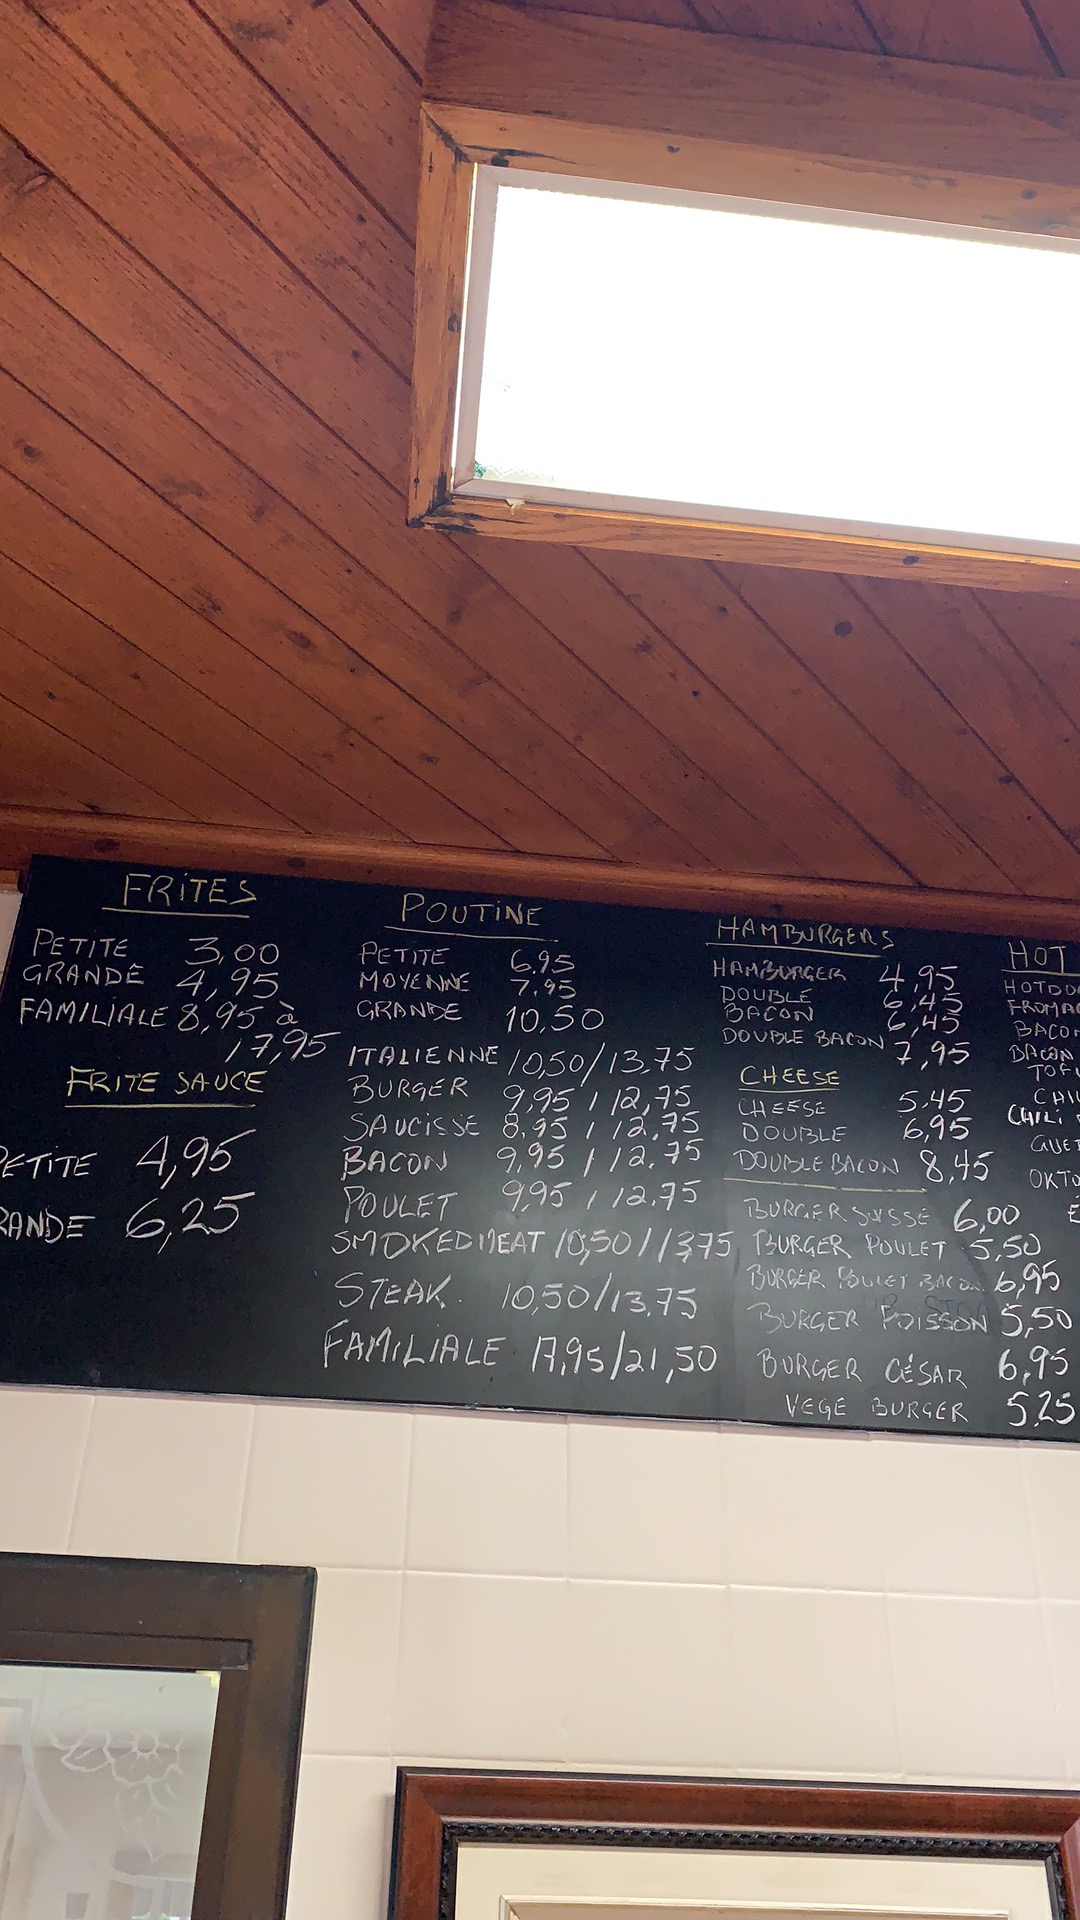 FRITES
PETITE 3,00
GRANDE 4,95
FAMILIALE 8,95 à
17,95
FRITE SAUCE
PETITE 4,95
RANDE 6,25
POUTINE
PETITE 6.95
MOYENNE 7.95
GRANDE 10,50
ITALIENNE 10,50/13,75
BURGER 9,95 / 12,75
SAUCISSE 8,95 / 12,75
BACON 9,95 / 12,75
POULET 9,95 / 12,75
SMOKED MEAT /10,50 / 13,75
STEAK. 10,50/13,75
FAMILIALE 17,95/21,50
HAMBURGERS
HAMBURGER 4,95
DOUBLE 6,45
BACON 6,45
DOUBLE BACON 7,95
CHEESE
CHEESE 5.45
DOUBLE 6,95
DOUBLE BACON 8,45
BURGER SUISSE 6,00
BURGER POULET 5,50
BURGER POULET BACON 6,95
BURGER POISSON 5,50
BURGER CÉSAR 6,95
VEGE BURGER 5,25
HOT
HOTDO
FROMAG
BACON
BACON
TOFU
CHIL
CHILI
GUE
OKTO